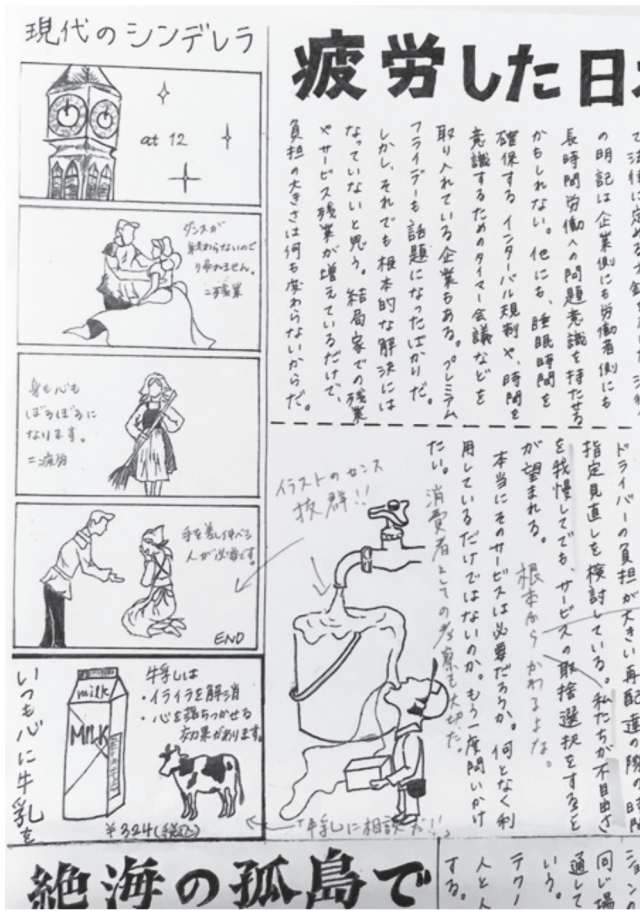 現代のシンデレラ
at 12
ダンスが
終わらないので
帰れません。
=残業
身も心も
ぼろぼろに
なります。
=疲労
手を差し伸べる
人が必要です
END
いつも心に牛乳を
milk
MILK
牛乳は
・イライラを解消
・心を落ちつかせる
効果があります。
¥324(税込)
疲労した日
の明記は企業側にも労働者側にも
長時間労働への問題意識を持たせる
かもしれない。他にも、睡眠時間を
確保するインターバル規制や、時間を
意識するためのタイマー会議などを
取り入れている企業もある。プレミアム
フライデーも話題になったばかりだ。
しかし、それでも根本的な解決には
なっていないと思う。結局家での残業
やサービス残業が増えているだけで、
負担の大きさは何も変わらないからだ。
ドライバーの負担が大きい再配達の際の時間
指定見直しを検討している。私たちが不自由さ
を我慢してでも、サービスの取捨選択をすること
が望まれる。
根本からかわるよな。
本当にそのサービスは必要だろうか。何となく利
用しているだけではないのか。もう一度問いかけ
たい。
消費者としての考察も大切だ。
イラストのセンス
抜群!!
牛乳に相談だ!!
絶海の孤島で
同じ場
通して
いう。
テクノ
人と人
する。